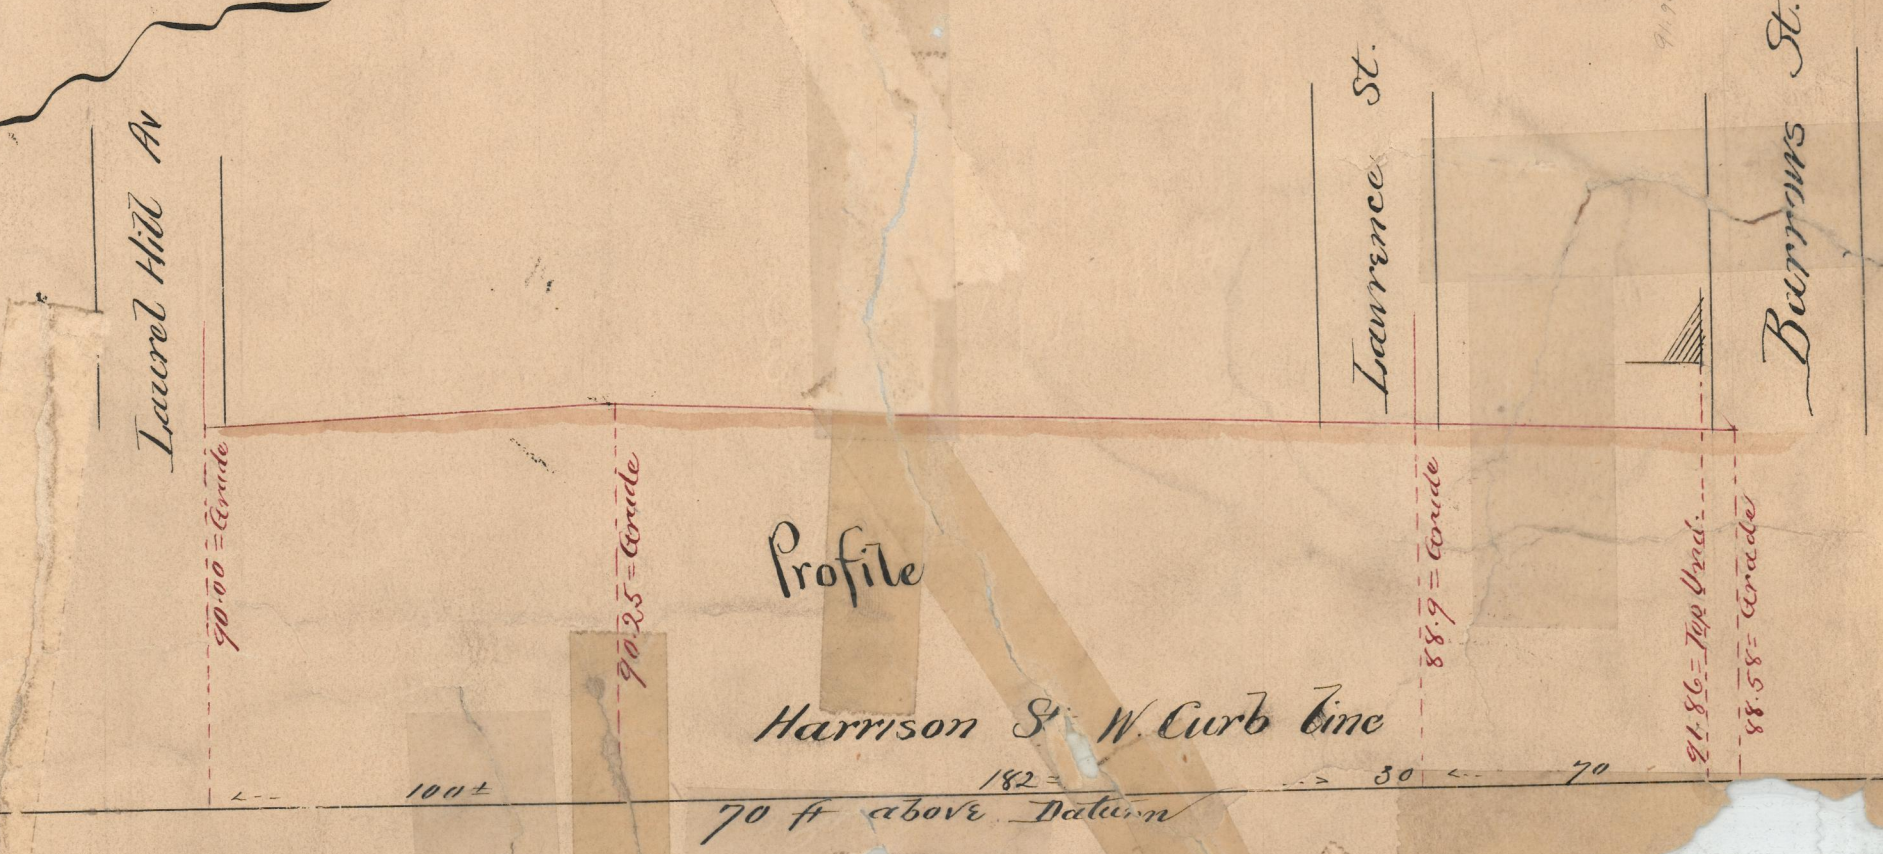 Laurel Hill Av
Lawrence St.
Burrows St.
90.00 = Grade
90.25 = Grade
88.9 = Grade
91.86 = Top
88.58 = Grade
Profile
Harrison St W. Curb Line
100±
182 =
30
70
70 ft above Datum